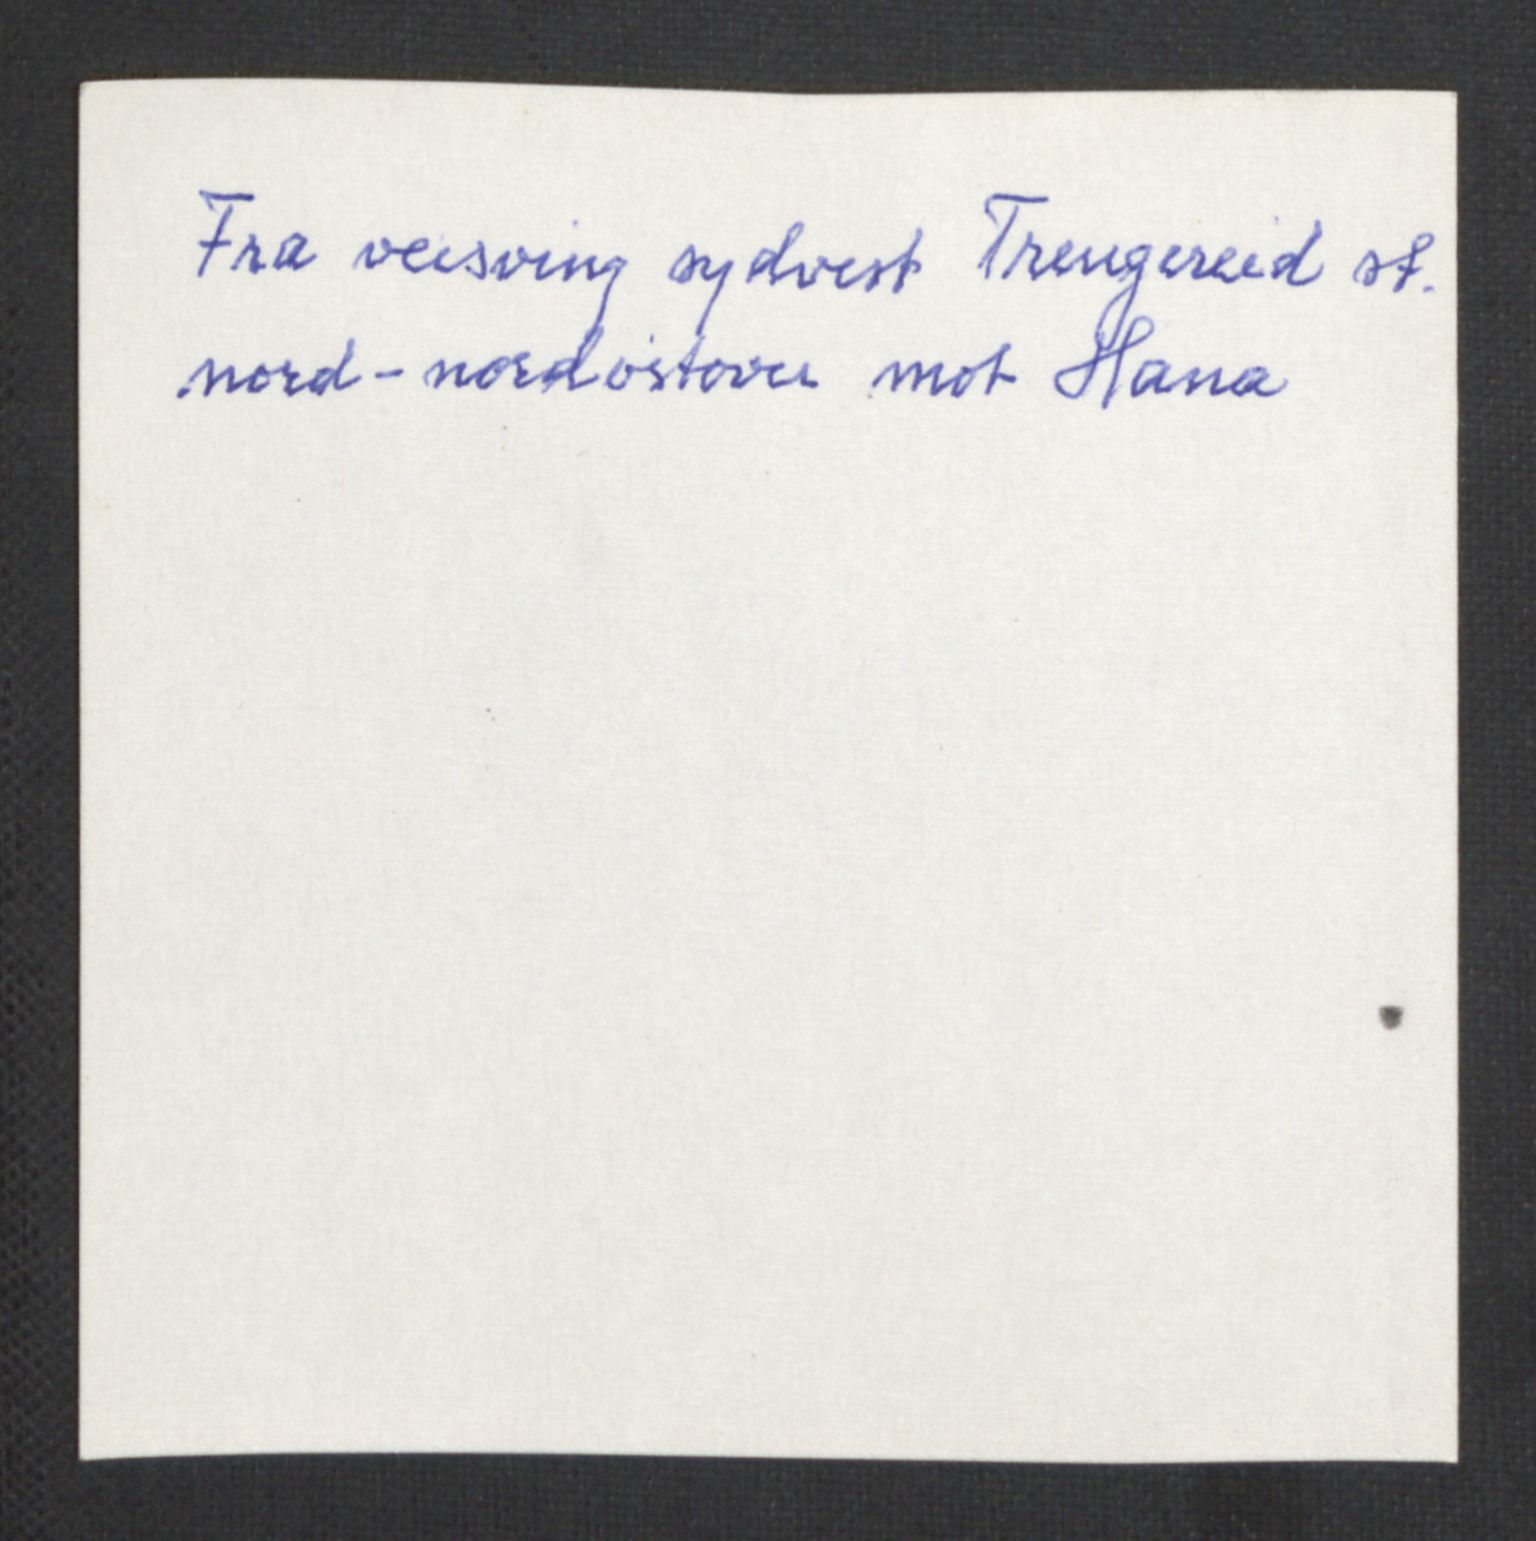 Fra veisving sydvest Trengereid st.
nord-nordöstover mot Hana